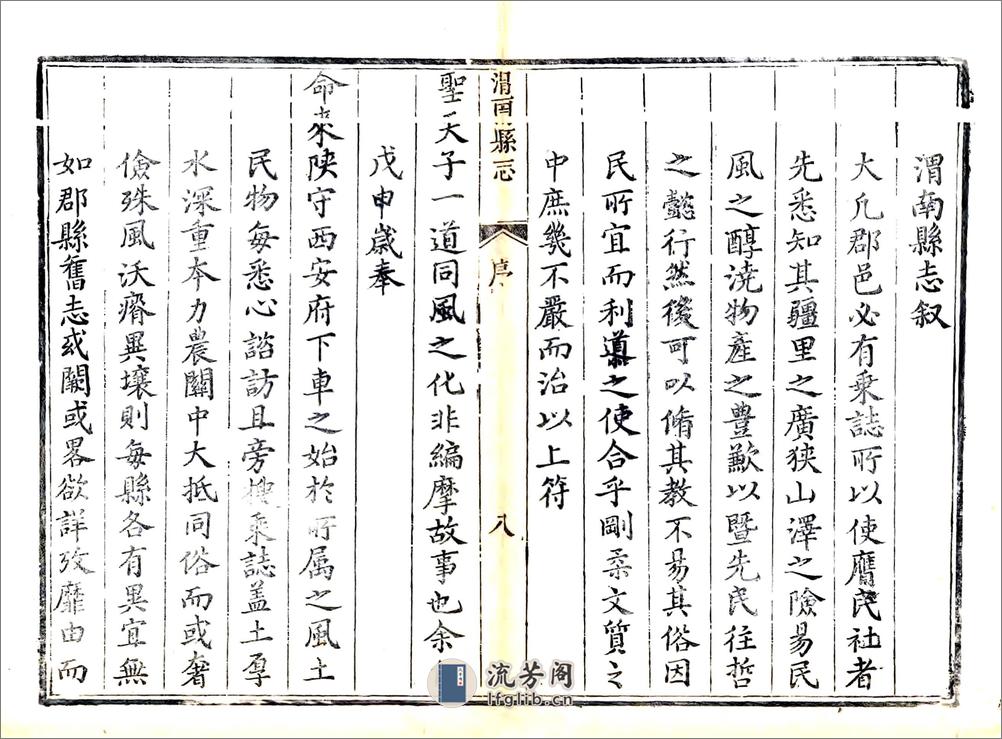 渭南縣志叙
大凡郡邑必有乘誌所以使膺民社者
先悉知其疆里之廣狹山澤之險易民
風之醇澆物產之豊歉以暨先民往哲
之懿行然後可以脩其教不易其俗因
民所宜而利導之使合乎剛柔文質之
中庶幾不嚴而治以上符
渭南縣志
序
八
聖天子一道同風之化非編摩故事也余
戊申歲奉
命來陝守西安府下車之始於所属之風土
民物每悉心諮訪且旁搜乘誌盖土厚
水深重本力農關中大抵同俗而或奢
儉殊風沃瘠異壤則每縣各有異宜無
如郡縣舊志或闕或畧欲詳攷靡由而
流芳阁
lfglib.cn